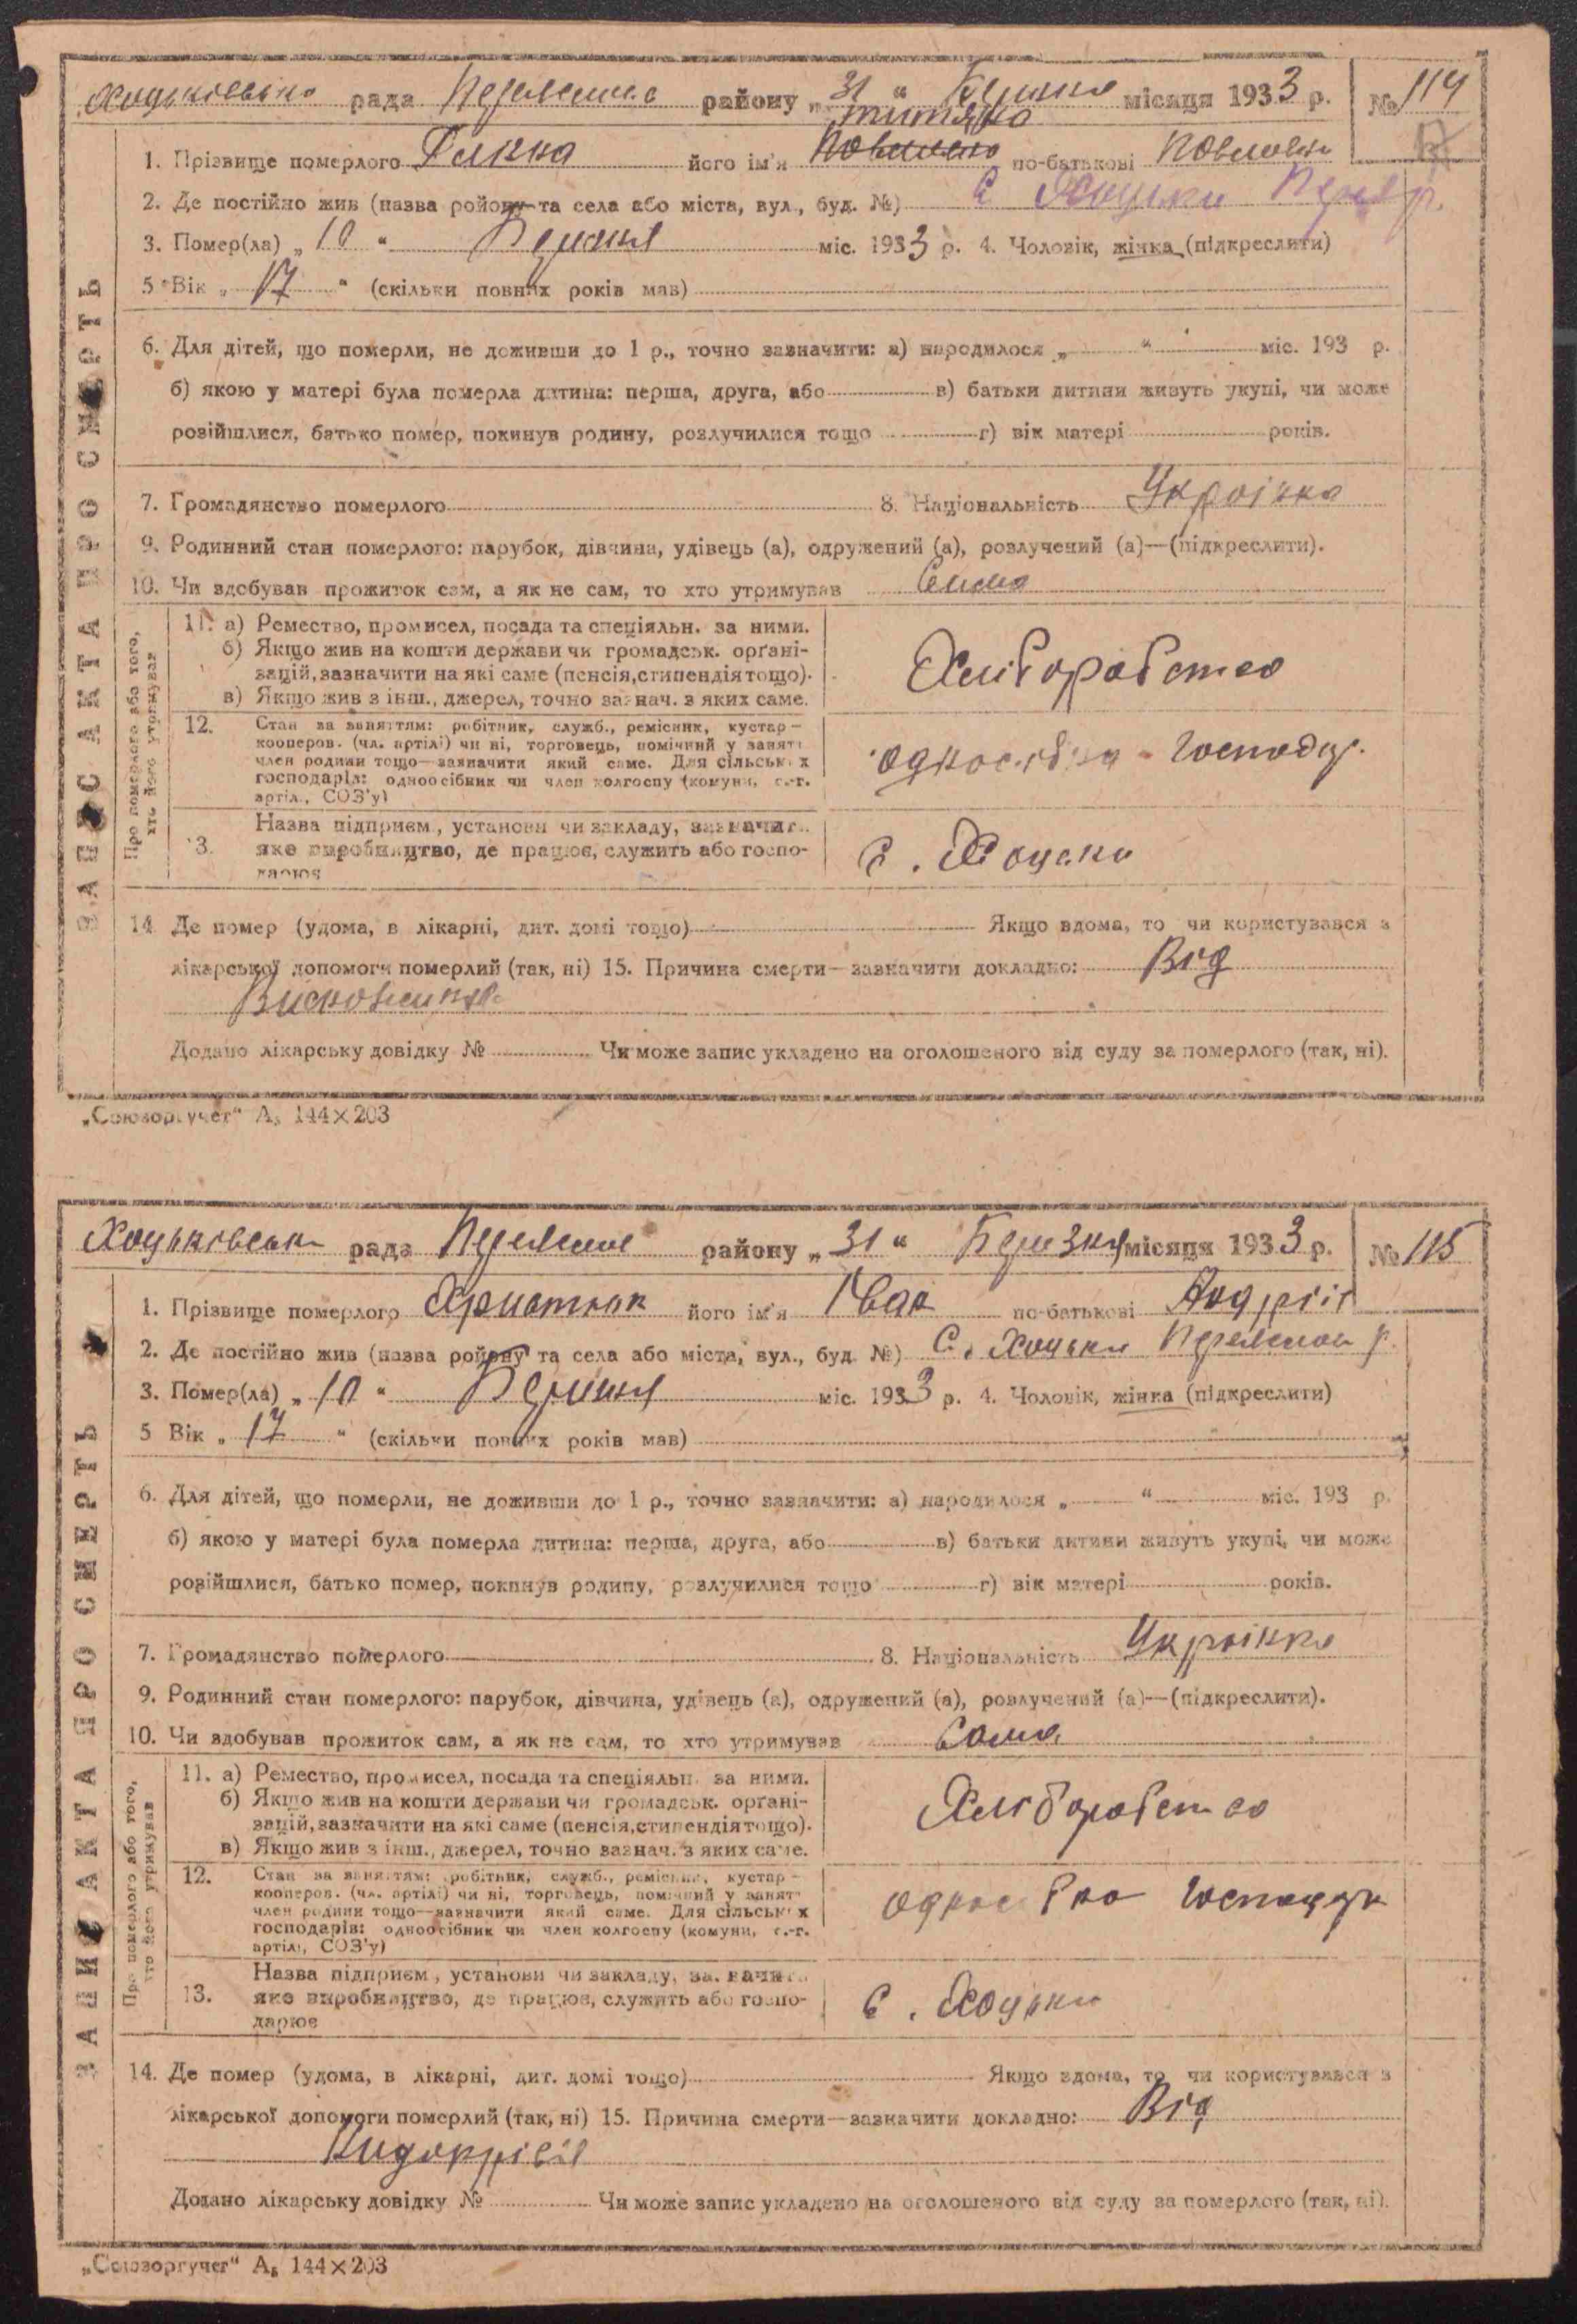 ЗАПИС АКТА ПРО СМЕРТЬ
рада района „31“ місяця 1933 р. № 114
1. Прізвище померлого Ганна його ім'я по-батькові
2. Де постійно жив (назва району та села або міста, вул., буд. №) с Хоцьки
3. Помер(ла) „10“ Березня міс. 1933 р. 4. Чоловік, жінка (підкреслити)
5 Вік „17“ (скільки повних років мав)
6. Для дітей, що померли, не доживши до 1 р., точно зазначити: а) народилося „ “ міс. 193 р.
б) якою у матері була померла дитина: перша, друга, або в) батьки дитини живуть укупі, чи може
розійшлися, батько помер, покинув родину, розлучилися тощо г) вік матері років.
7. Громадянство померлого 8. Національність Українка
9. Родинний стан померлого: парубок, дівчина, удівець (а), одружений (а), розлучений (а)—(підкреслити).
10. Чи здобував прожиток сам, а як не сам, то хто утримував Сама
Про померлого або того, хто його утримував
11. а) Ремество, промисел, посада та спеціяльн. за ними.
б) Якщо жив на кошти держави чи громадськ. орґані-
зацій, зазначити на які саме (пенсія, стипендія тощо).
в) Якщо жив з інш., джерел, точно зазнач. з яких саме.
Хліборобство
12. Стан за заняттям: робітник, служб., ремісник, кустар—
кооперов. (чл. артілі) чи ні, торговець, помічний у занятт
член родини тощо—зазначити який саме. Для сільських
господарів: одноосібник чи член колгоспу (комуни, с.-г.
артіл., СОЗ'у)
13. Назва підприєм., установи чи закладу, зазначити
яке виробництво, де працює, служить або госпо-
дарює
с. Хоцьки
14 Де помер (удома, в лікарні, дит. домі тощо) Якщо вдома, то чи користувався з
лікарської допомоги померлий (так, ні) 15. Причина смерти—зазначити докладно: Від
Виснаження
Додано лікарську довідку № Чи може запис укладено на оголошеного від суду за померлого (так, ні).
„Союзоргучет“ А₅ 144×203
ЗАПИС АКТА ПРО СМЕРТЬ
рада району „31“ Березня місяця 1933 р. № 115
1. Прізвище померлого його ім'я Іван по-батькові
2. Де постійно жив (назва району та села або міста, вул., буд. №) С. Хоцьки р.
3. Помер(ла) „10“ Березня міс. 1933 р. 4. Чоловік, жінка (підкреслити)
5 Вік „17“ (скільки повних років мав)
6. Для дітей, що померли, не доживши до 1 р., точно зазначити: а) народилося „ “ міс. 193 р.
б) якою у матері була померла дитина: перша, друга, або в) батьки дитини живуть укупі, чи може
розійшлися, батько помер, покинув родину, розлучилися тощо г) вік матері років.
7. Громадянство померлого 8. Національність Українка
9. Родинний стан померлого: парубок, дівчина, удівець (а), одружений (а), розлучений (а)—(підкреслити).
10. Чи здобував прожиток сам, а як не сам, то хто утримував Сама
Про померлого або того, хто його утримував
11. а) Ремество, промисел, посада та спеціяльн. за ними.
б) Якщо жив на кошти держави чи громадськ. орґані-
зацій, зазначити на які саме (пенсія, стипендія тощо).
в) Якщо жив з інш., джерел, точно зазнач. з яких саме.
Хліборобство
12. Стан за заняттям: робітник, служб., ремісник, кустар—
кооперов. (чл. артілі) чи ні, торговець, помічний у занятт
член родини тощо—зазначити який саме. Для сільських
господарів: одноосібник чи член колгоспу (комуни, с.-г.
артіл., СОЗ'у)
13. Назва підприєм., установи чи закладу, зазначити
яке виробництво, де працює, служить або госпо-
дарює
с. Хоцьки
14. Де помер (удома, в лікарні, дит. домі тощо) Якщо вдома, то чи користувався з
лікарської допомоги померлий (так, ні) 15. Причина смерти—зазначити докладно: Від
Додано лікарську довідку № Чи може запис укладено на оголошеного від суду за померлого (так, ні).
„Союзоргучет“ А₅ 144×203